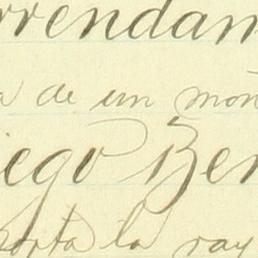 rrendam
a de un mon
iego Ber
porta la ray